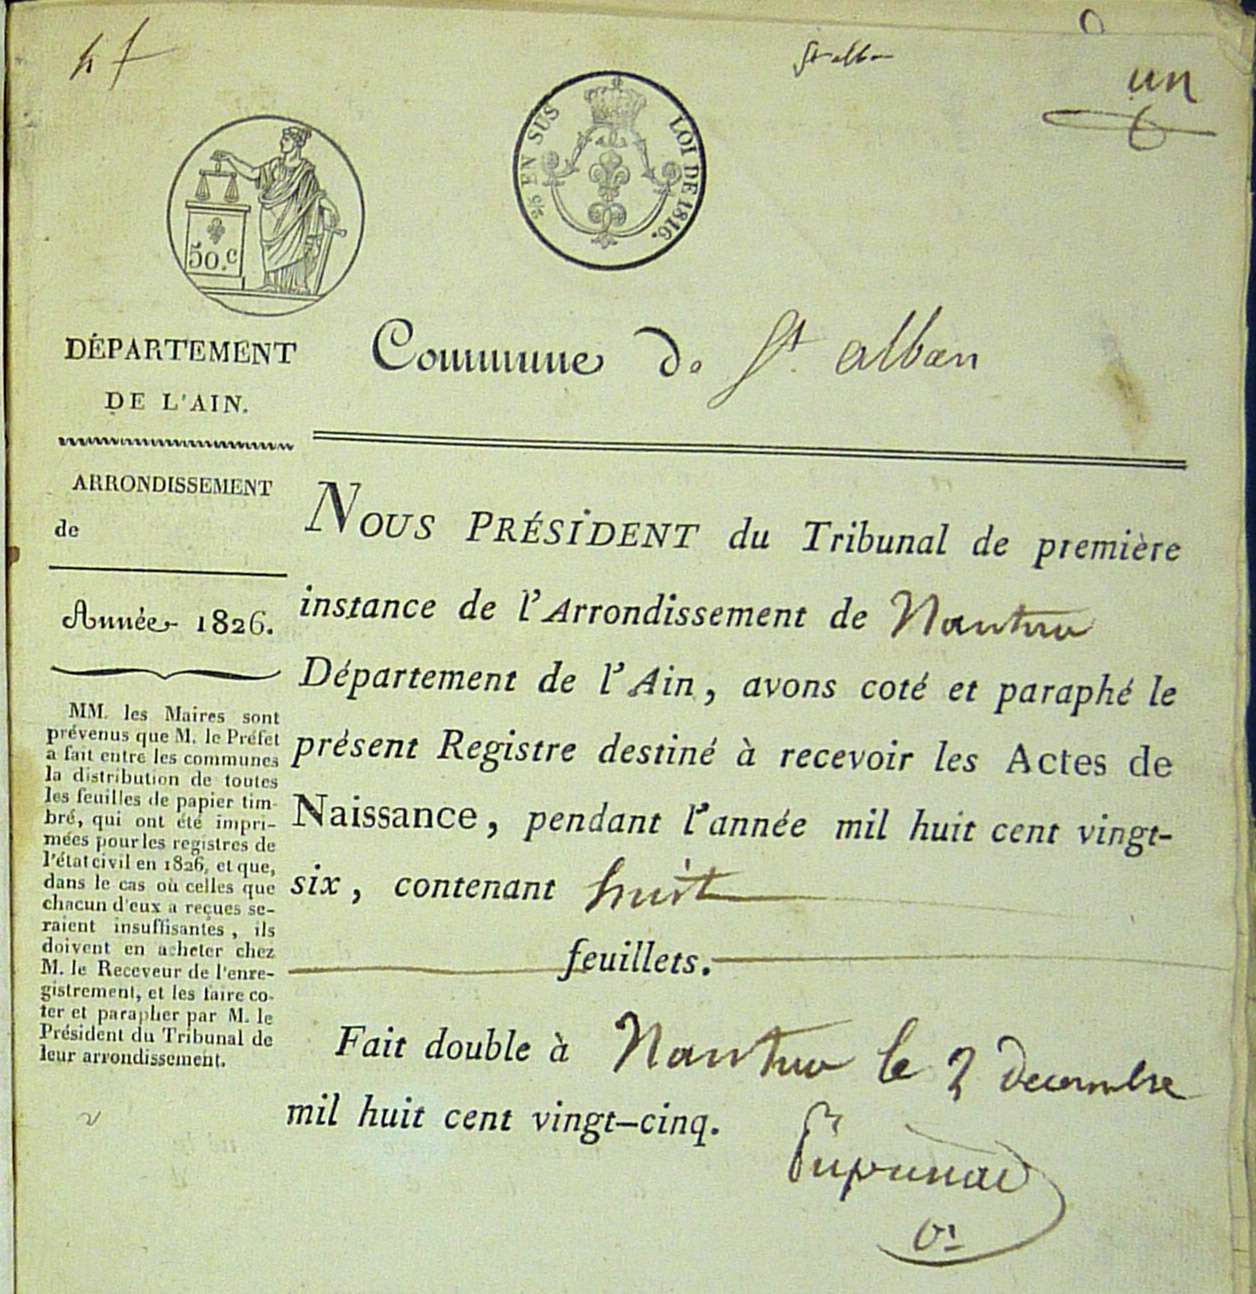 St alban
un
2/5 EN SUS LOI DE 1816.
50.C
DÉPARTEMENT
DE L'AIN.
Commune de St. alban
ARRONDISSEMENT
de
Année 1826.
MM. les Maires sont
prévenus que M. le Préfet
a fait entre les communes
la distribution de toutes
les feuilles de papier tim-
bré, qui ont été impri-
mées pour les registres de
l'état civil en 1826, et que,
dans le cas où celles que
chacun d'eux a reçues se-
raient insuffisantes, ils
doivent en acheter chez
M. le Receveur de l'enre-
gistrement, et les faire co-
ter et parapher par M. le
Président du Tribunal de
leur arrondissement.
NOUS PRÉSIDENT du Tribunal de première
instance de l'Arrondissement de Nantua
Département de l'Ain, avons coté et paraphé le
présent Registre destiné à recevoir les Actes de
Naissance, pendant l'année mil huit cent vingt-
six, contenant huit
feuillets.
Fait double à Nantua le 2 decembre
mil huit cent vingt-cinq.